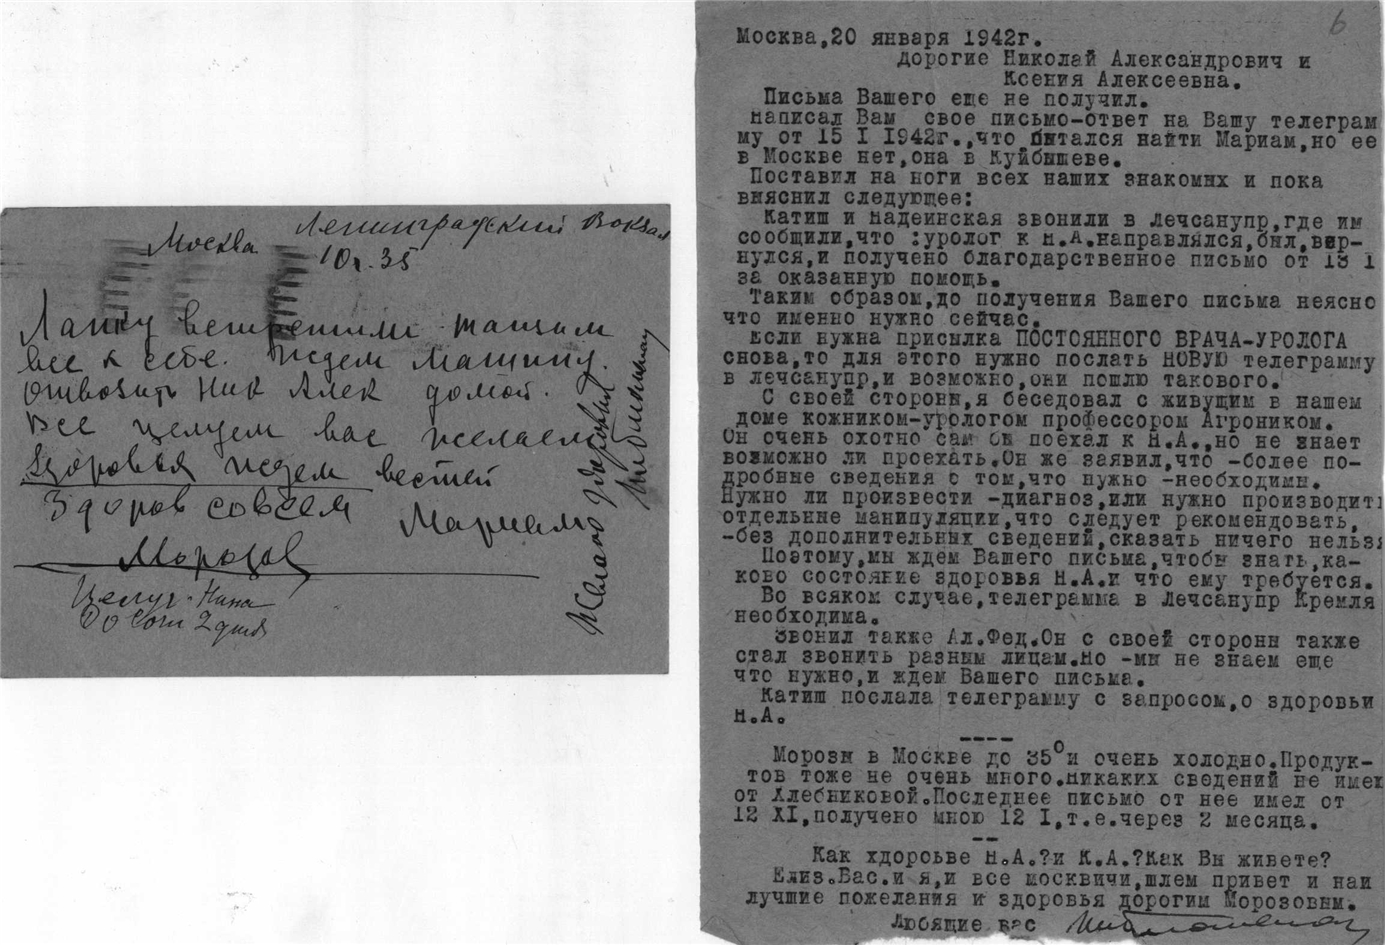 Москва
Ленинградский вокзал
10ч. 35
встретили тащим
все к себе. Ждем машину.
отвозить Ник Алек домой.
Все целуем вас желаем
здоровья ждем вестей
Здоров совсем
Мариам
Морозов
Целую. Нина
6
Москва,20 января 1942г.
Дорогие Николай Александрович и
Ксения Алексеевна.
Письма Вашего еще не получил.
Написал Вам свое письмо-ответ на Вашу телеграм
му от 15 I 1942г.,что пытался найти Мариам,но ее
в Москве нет,она в Куйбышеве.
Поставил на ноги всех наших знакомых и пока
выяснил следующее:
Катиш и Надеинская звонили в Лечсанупр,где им
сообщили,что :уролог к Н.А.направлялся,был,вер-
нулся,и получено благодарственное письмо от 13 I
за оказанную помощь.
Таким образом,до получения Вашего письма неясно
что именно нужно сейчас.
Если нужна присылка ПОСТОЯННОГО ВРАЧА-УРОЛОГА
снова,то для этого нужно послать НОВУЮ телеграмму
в лечсанупр,и возможно,они пошлю такового.
С своей стороны,я беседовал с живущим в нашем
доме кожником-урологом профессором Агроником.
Он очень охотно сам бы поехал к Н.А.,но не знает
возможно ли проехать.Он же заявил,что -более по-
дробные сведения о том,что нужно -необходимы.
Нужно ли произвести -диагноз,или нужно производить
отдельные манипуляции,что следует рекомендовать,
-без дополнительных сведений,сказать ничего нельзя
Поэтому,мы ждем Вашего письма,чтобы знать,ка-
ково состояние здоровья Н.А.и что ему требуется.
Во всяком случае,телеграмма в Лечсанупр Кремля
необходима.
Звонил также Ал.Фед.Он с своей стороны также
стал звонить разным лицам.Но -мы не знаем еще
что нужно,и ждем Вашего письма.
Катиш послала телеграмму с запросом,о здоровьи
Н.А.
----
Морозы в Москве до 35° и очень холодно.Продук-
тов тоже не очень много.Никаких сведений не имею
от Хлебниковой.Последнее письмо от нее имел от
12 XI,получено мною 12 I,т.е.через 2 месяца.
--
Как хдоровье Н.А.?и К.А.?Как Вы живете?
Елиз.Вас.и я,и все москвичи,шлем привет и наи
лучшие пожелания и здоровья дорогим Морозовым.
Любящие вас